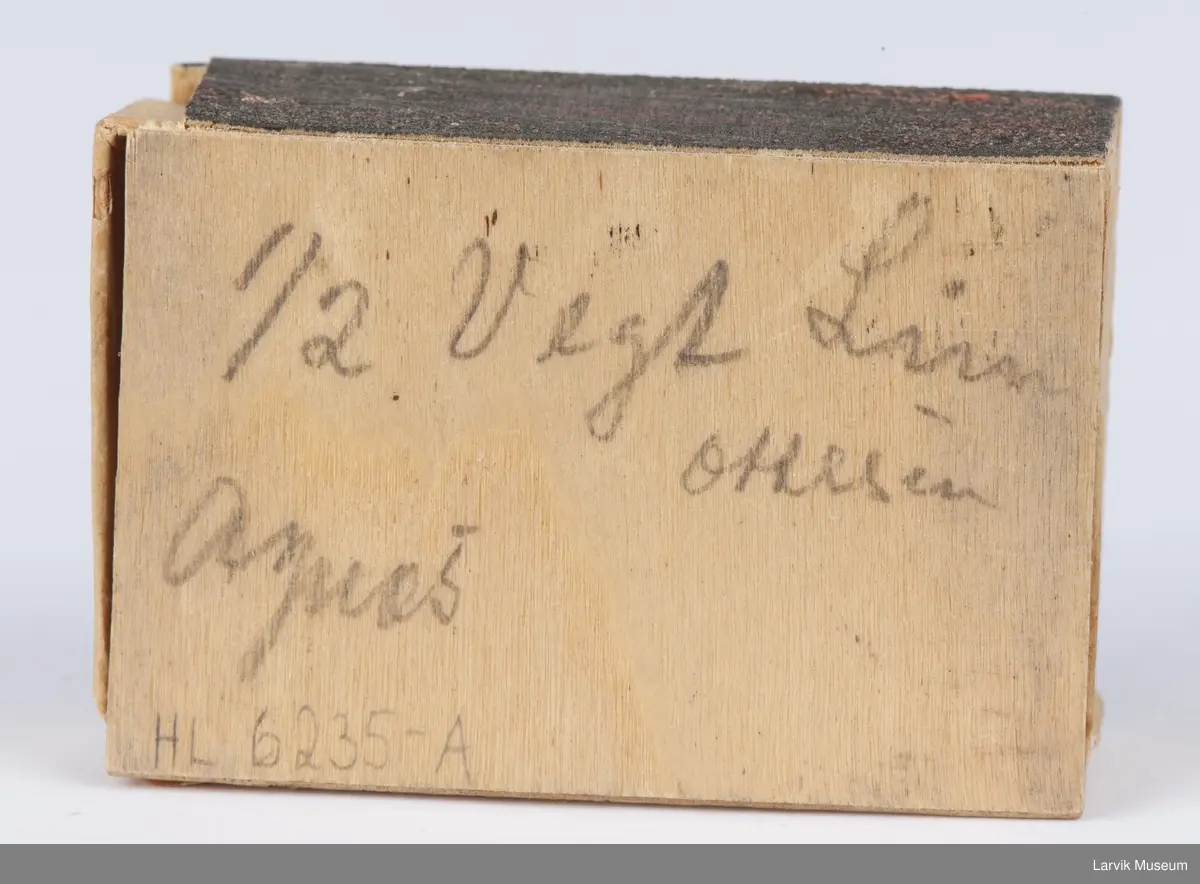 1/2 Vegt Lim
Ottesen
Agnes
HL 6235-A
Larvik Museum